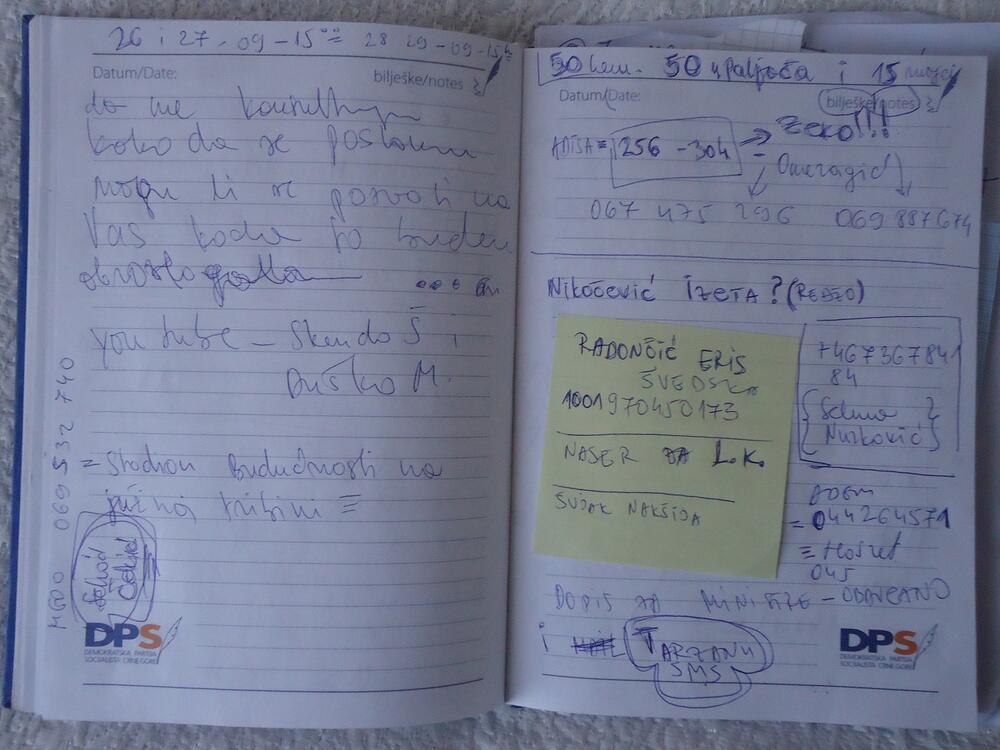 26 i 27.09-15⁰⁰= 28 29-09-15h
Datum/Date:
bilješke/notes
da me
kako da se
mogu li se pozvati na
Vas kada to budem
....
you tube - Škendo Š i
Duško M.
= Stadion Budućnosti na
južnoj tribini =
069 532 740
DPS
DEMOKRATSKA PARTIJA
SOCIJALISTA CRNE GORE
50 kem. 50 upaljača i 15
Datum/Date:
bilješke/notes
ADISA = 256 - 304 → ZEKO!!!
= Omeragić
067 475 296 069 887674
Nikočević Izeta? (REDŽO)
RADONČIĆ ERIS
ŠVEDSKA
1001970450173
NASER ZA L.K.
ŠUJAK NAKŠIJA
+467367841
84
{ Selma }
{ Nurković }
ADEM
= 044264571
= Hasret
045
DOPIS ZA MINIĆE - ODOBRANO
i TARZANU
SMS
DPS
DEMOKRATSKA PARTIJA
SOCIJALISTA CRNE GORE